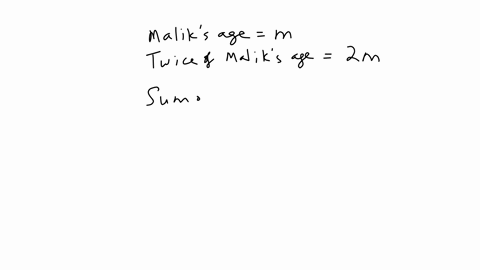 Malik's age = m
Twice of Malik's age = 2m
Sum